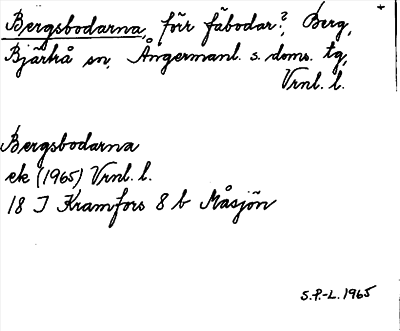 Bergsbodarna, förr fäbodar?, Berg,
Bjärtrå sn, Ångermanl. s. doms. tg,
Vrnl. l.
Bergsbodarna
ek (1965) Vrnl. l.
18 I Kramfors 8 b Måsjön
S.P.-L. 1965